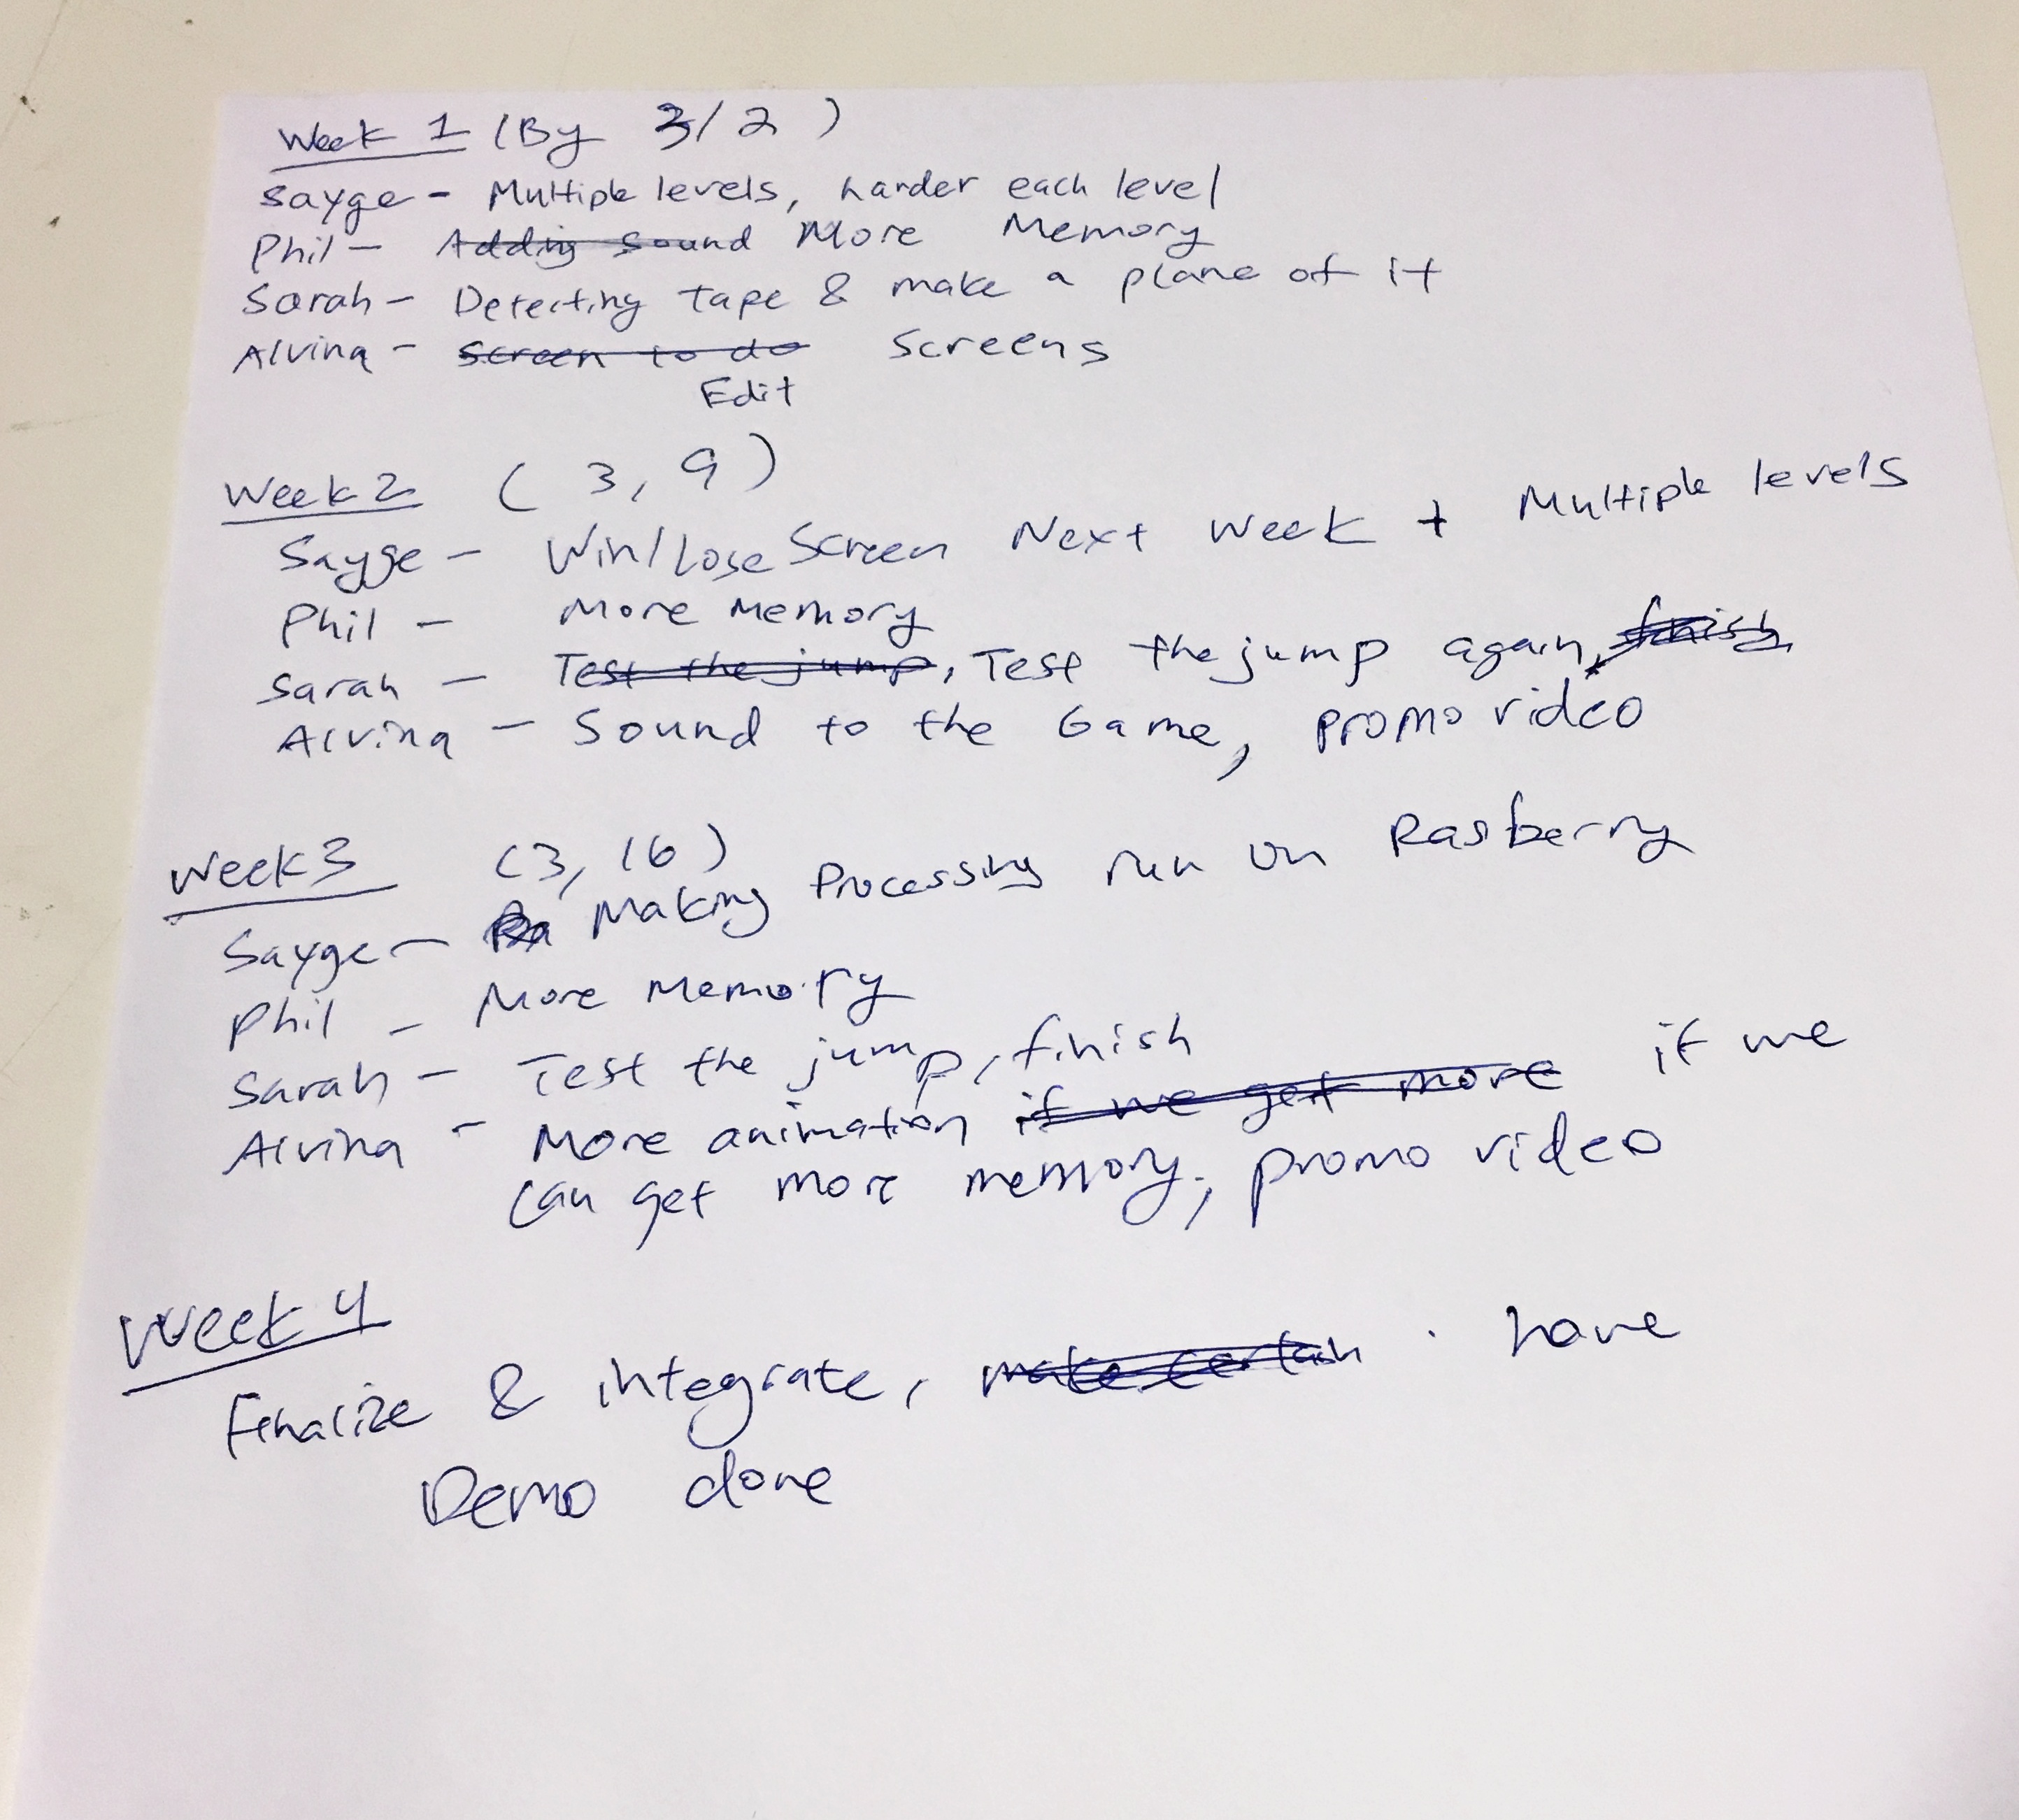 Week 1 (By 3/2)
Sayge - Multiple levels, harder each level
Phil - Adding sound More Memory
Sarah - Detecting tape & make a plane of it
Alvina - Screen to do Screens
Edit
Week 2 (3, 9)
Sayge - Win/Lose Screen Next Week + Multiple levels
Phil - More Memory
Sarah - Test the jump, Test the jump again, finish
Alvina - Sound to the Game, promo video
Week 3 (3, 16)
Sayge - Ra Making Processing run on Rasberry
Phil - More Memory
Sarah - Test the jump, finish
Alvina - More animation if we get more if we
can get more memory, promo video
Week 4
Finalize & integrate, make certain . have
Demo done